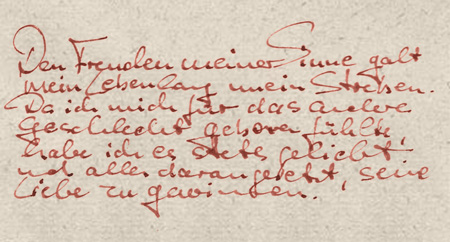 Den Freuden meiner Sinne galt
mein Lebenlang mein Streben.
Da ich mich für das andere
Geschlecht geboren fühlte,
habe ich es stets geliebt
und alles darangesetzt, seine
Liebe zu gewinnen.